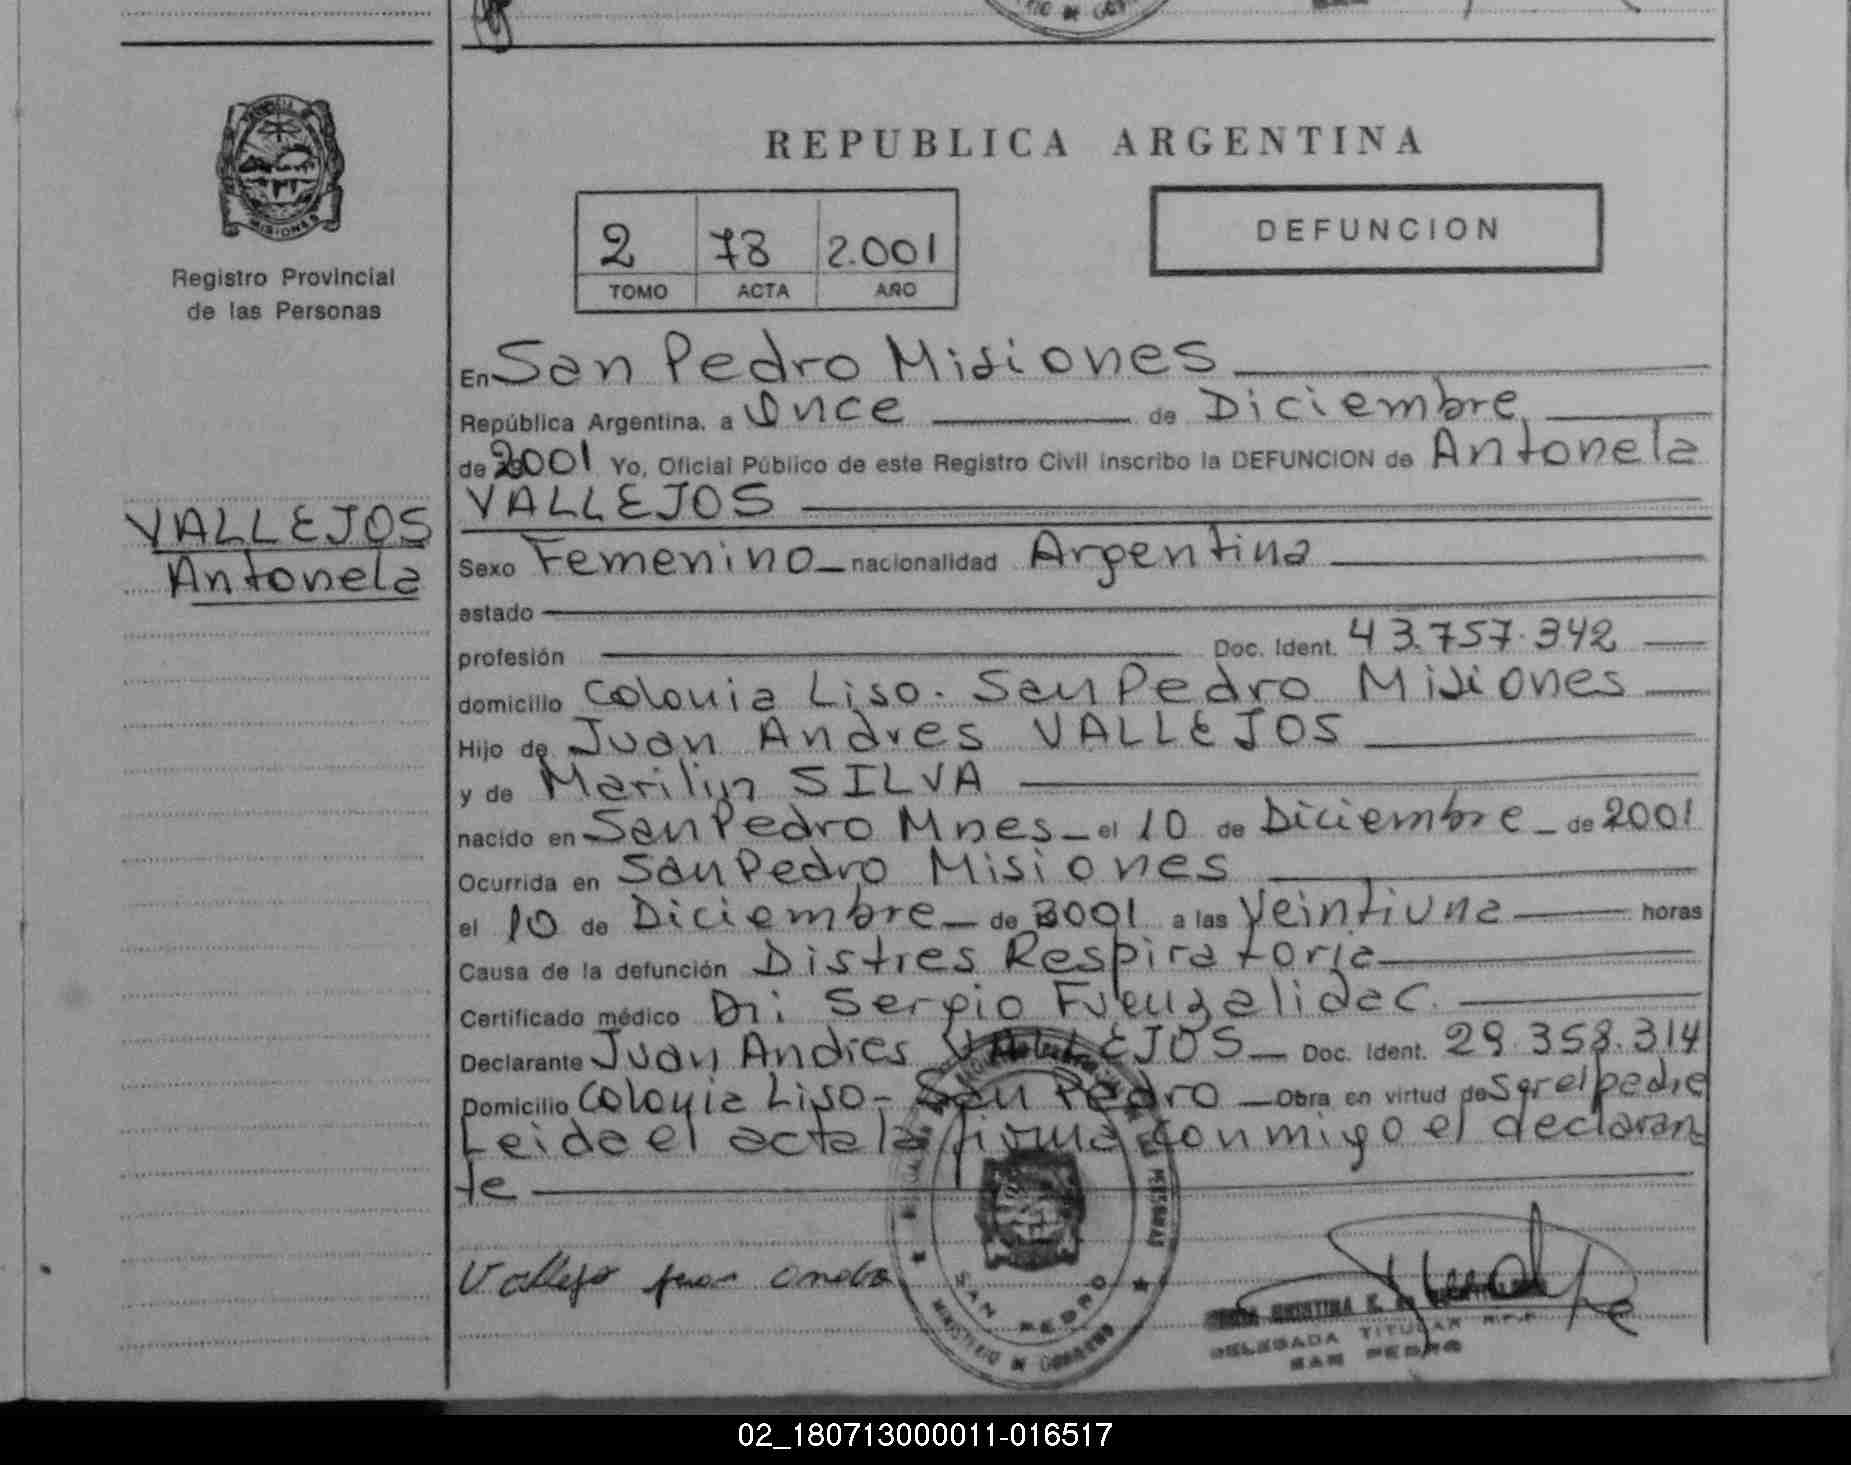 REPUBLICA ARGENTINA
PROVINCIA
MISIONES
Registro Provincial
de las Personas
2 78 2.001
TOMO ACTA AÑO
DEFUNCION
VALLEJOS
Antonela
En San Pedro Misiones
República Argentina, a Once de Diciembre
de 2001 Yo, Oficial Público de este Registro Civil inscribo la DEFUNCION de Antonela
VALLEJOS
Sexo Femenino nacionalidad Argentina
estado
profesión Doc. Ident. 43.757.342
domicilio Colonia Liso. San Pedro Misiones
Hijo de Juan Andres VALLEJOS
y de Marilin SILVA
nacido en San Pedro Mnes el 10 de Diciembre de 2001
Ocurrida en San Pedro Misiones
el 10 de Diciembre de 2001 a las Veintiuna horas
Causa de la defunción Distres Respiratoria
Certificado médico Dr: Sergio Fuenzalida C.
Declarante Juan Andres VALLEJOS Doc. Ident. 29.358.314
Domicilio Colonia Liso - San Pedro Obra en virtud de Ser el padre
Leida el acta la firma conmigo el declaran
te
Vallejo Juan
SAN PEDRO
MINISTERIO DE GOBIERNO
DELEGADA TITULAR R.P.P
SAN PEDRO
02_180713000011-016517